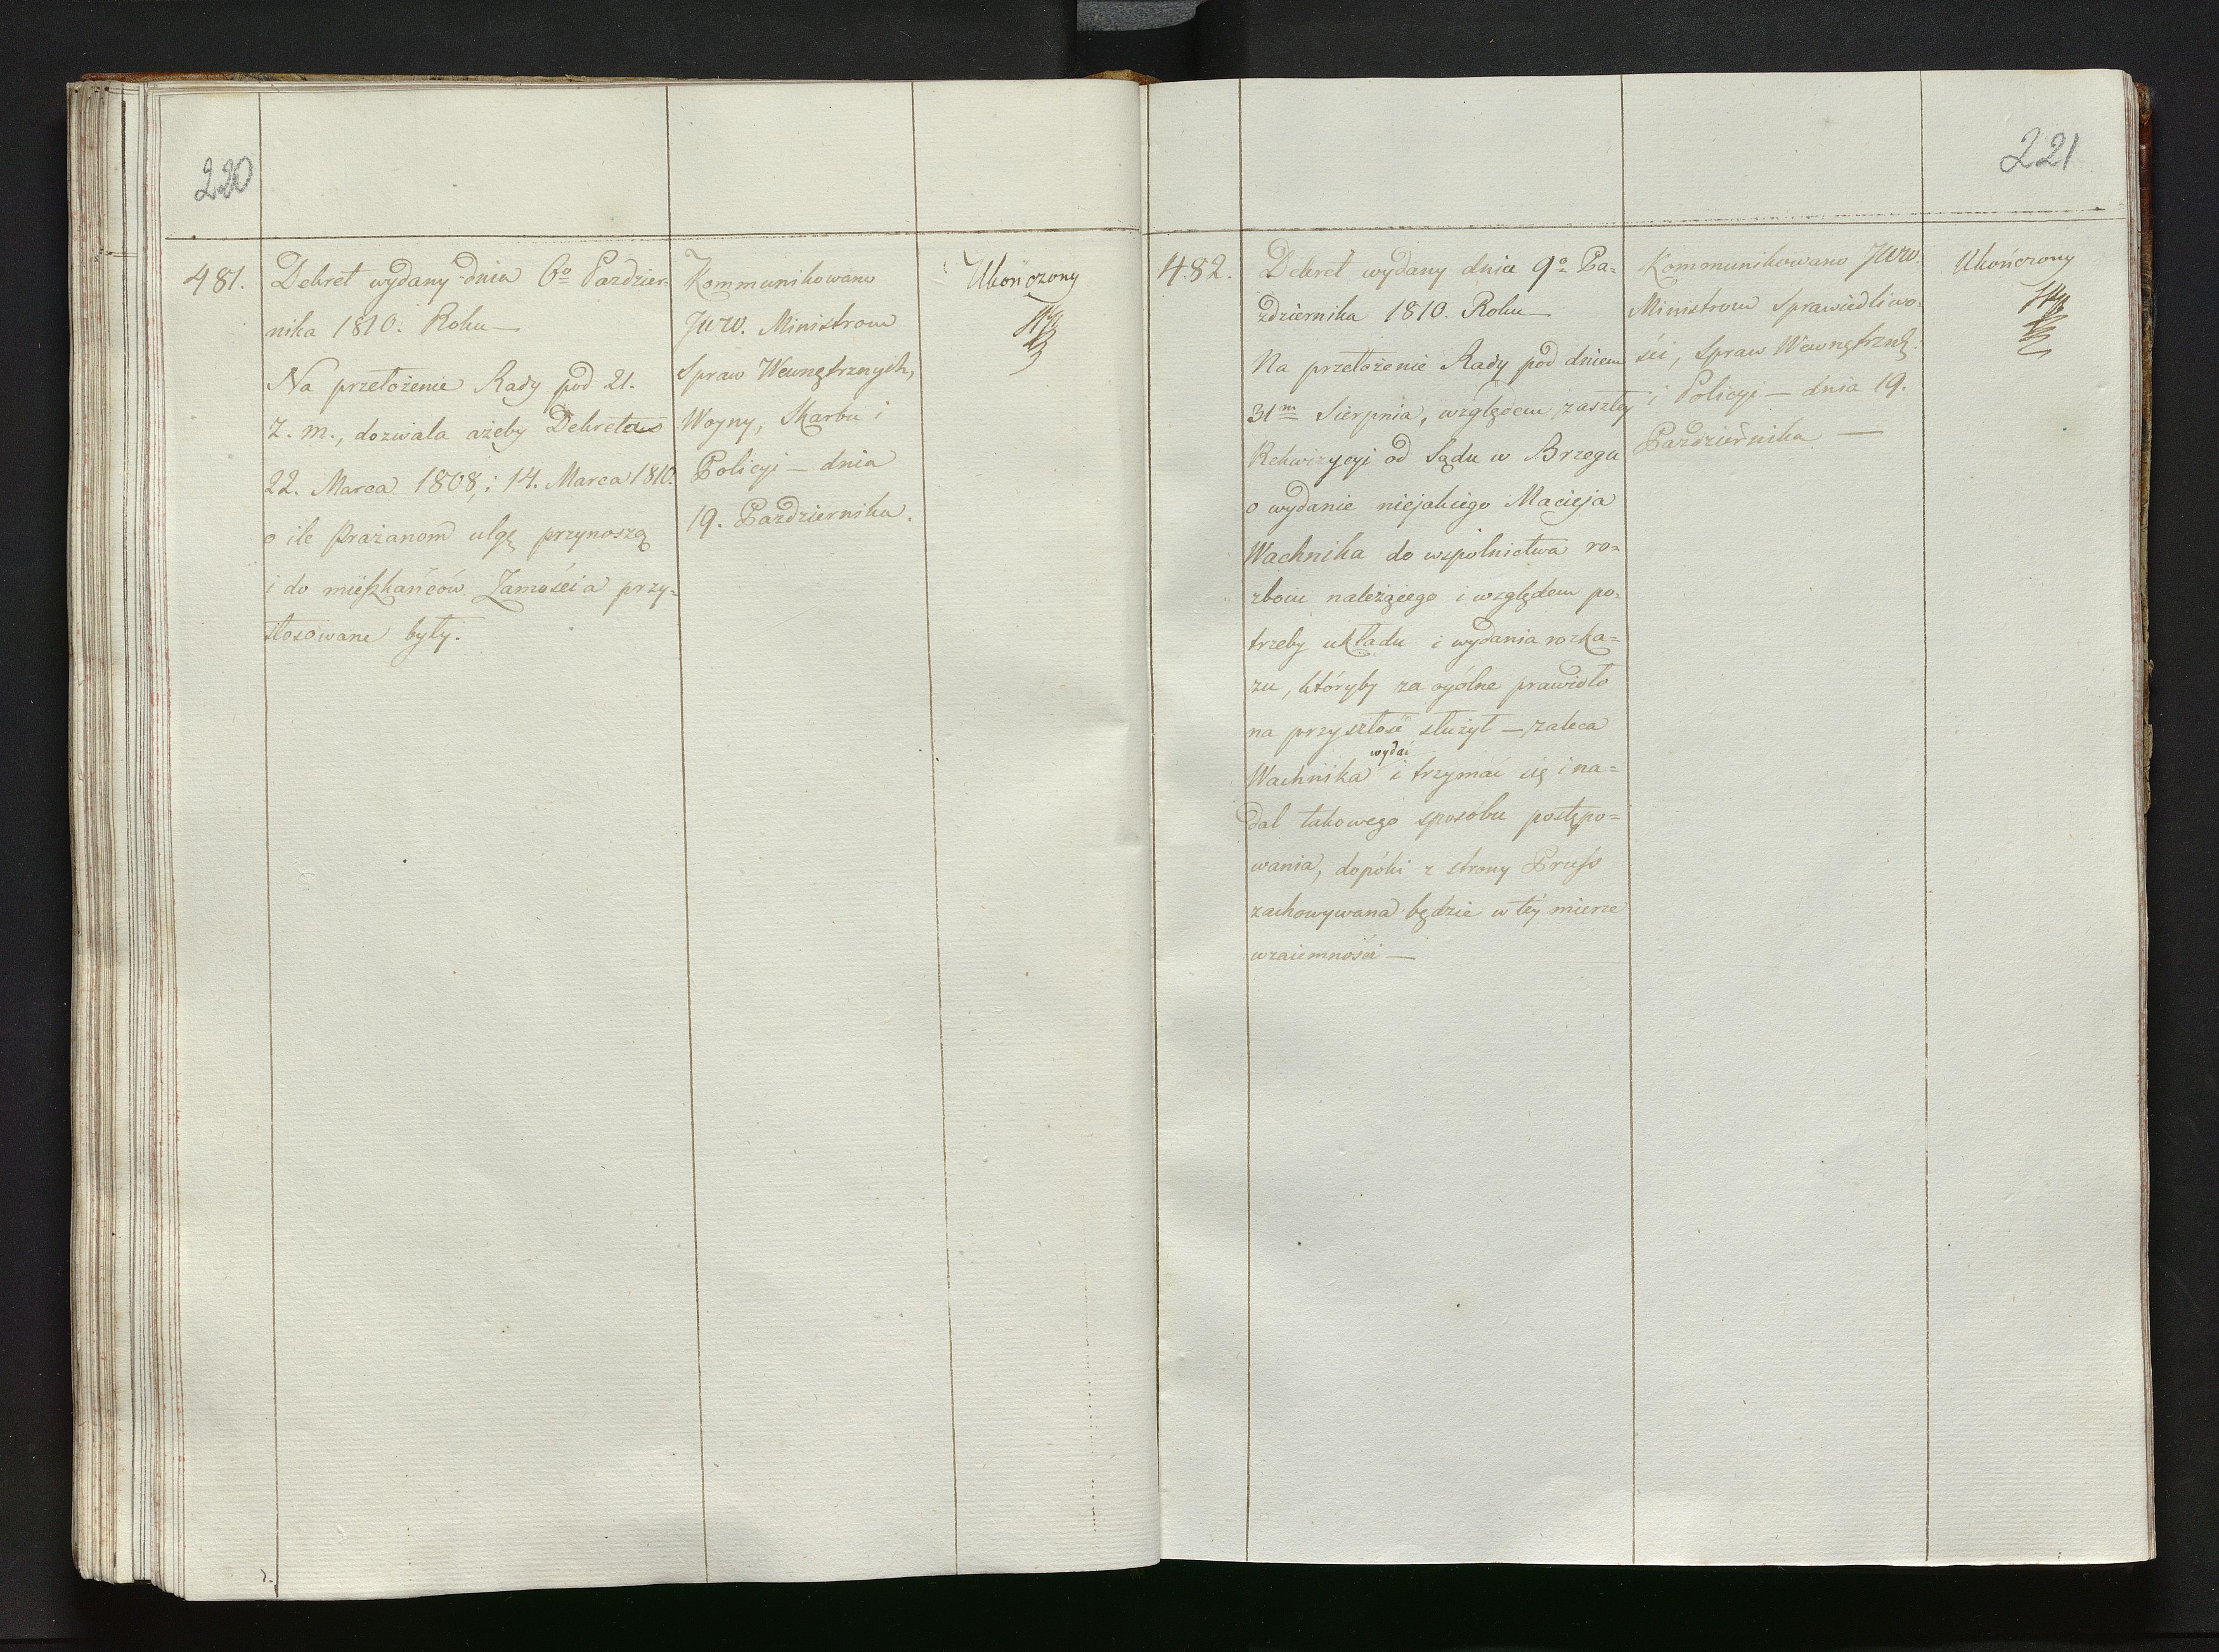 220
481.
Dekret wydany dnia 6º Pazdzier-
nika 1810. Roku —
Na przełożenie Rady pod 21.
z. m., dozwala ażeby Dekreta
22. Marca 1808, i 14. Marca 1810.
o ile Prażanom ulgę przynoszą
i do mieszkańców Zamościa przy-
stosowane były.
Kommunikowano
JWW. Ministrom
Spraw Wewnętrznych,
Woyny, Skarbu i
Policyi — dnia
19. Pazdziernika.
Ukończony
221
482.
Dekret wydany dnia 9º Pa-
zdziernika 1810. Roku —
Na przełożenie Rady pod dniem
31m Sierpnia, względem zaszłey
Rekwizycyi od Sądu w Brzegu
o wydanie niejakiego Macieja
Wachnika do wspólnictwa ro-
zboiu należącego i względem po-
trzeby układu i wydania rozka-
zu, któryby za ogólne prawidło
na przyszłość służył — zaleca
wydać
Wachnika i trzymać się i na-
dal takowego sposobu postępo-
wania, dopóki z strony Pruss
zachowywana będzie w téy mierze
wzaiemności —
Kommunikowano JWW.
Ministrom Sprawiedliwo-
ści, Spraw Wewnętrznych
i Policyi — dnia 19.
Pazdziernika —
Ukończony